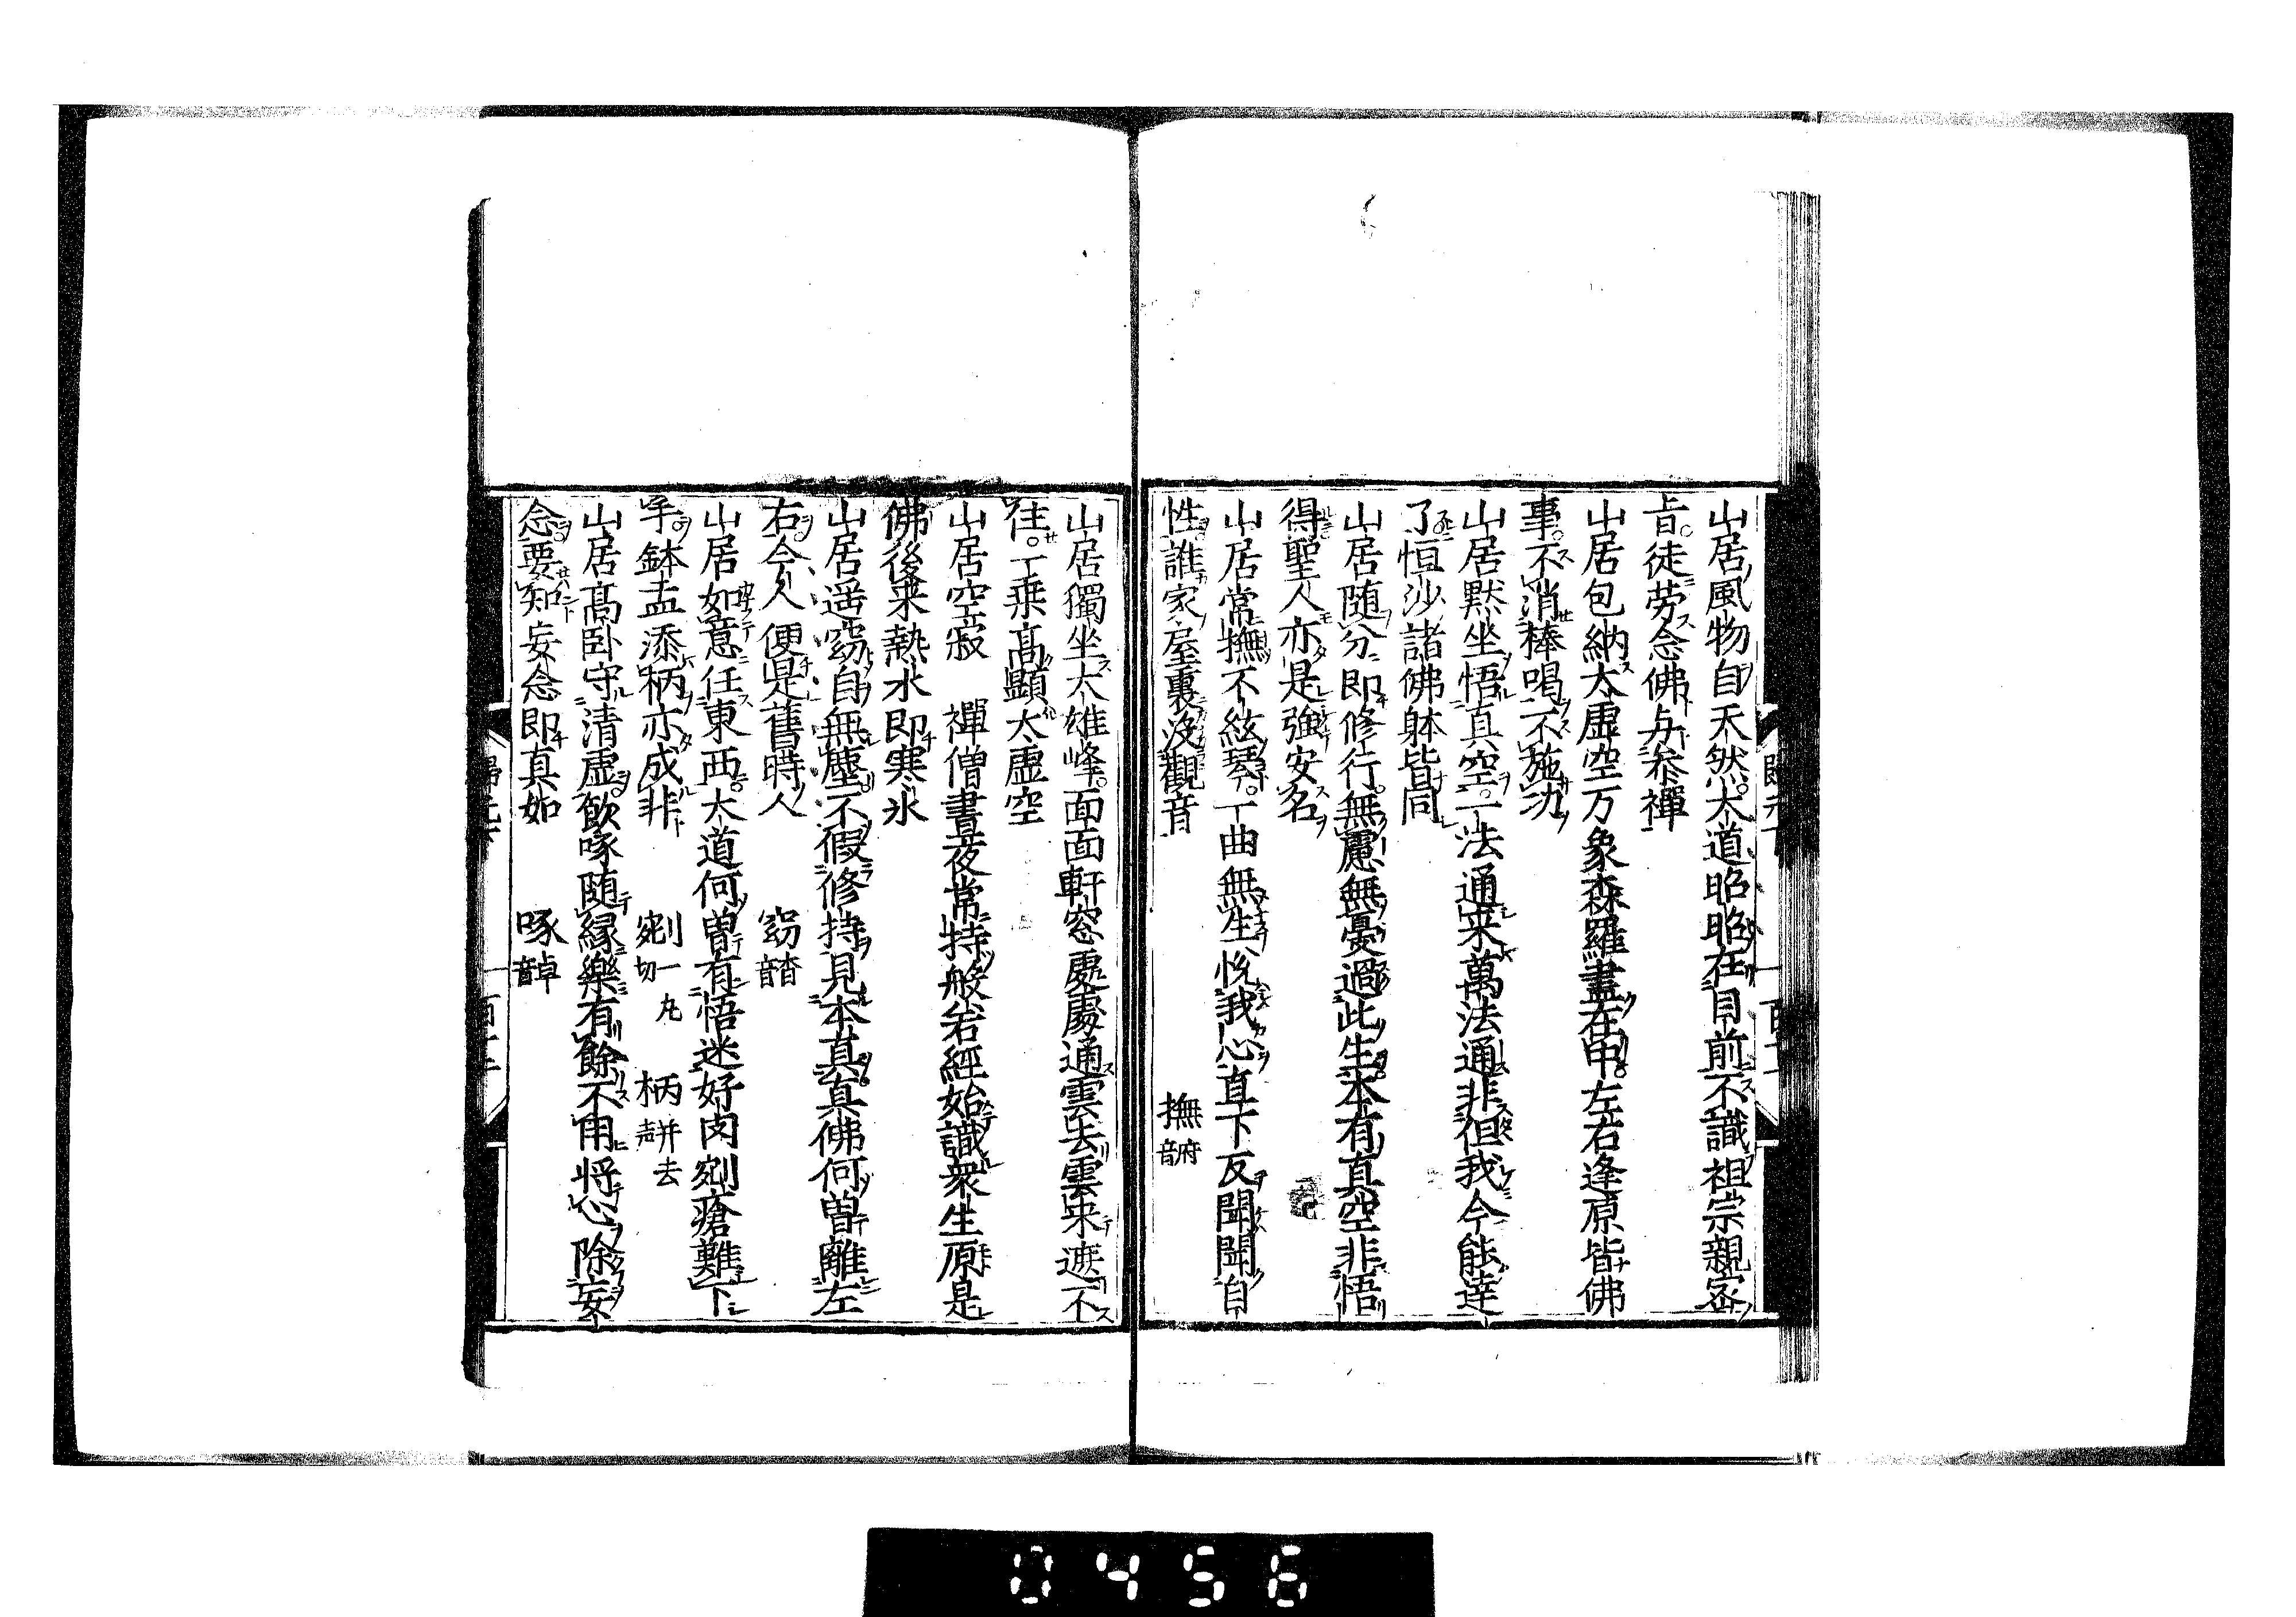 山居風物自天然大道昭昭在目前不識祖宗親密
旨徒劳念佛与参禪
山居包納太虚空万象森羅盡在中左右逢原皆佛
事不消棒喝不施功
山居黙坐悟真空一法通来萬法通非但我今能達
了恒沙諸佛躰皆同
山居随分即修行無慮無憂過此生本有真空非悟
得聖人亦是強安名
山居常撫不絃琴一曲無生悦我心直下反聞聞自
性誰家屋裏没觀音
撫音府
山居獨坐大雄峰面面軒窓處處通雲去雲来遮不
住一乗髙顯太虚空
山居空寂 禪僧晝夜常持般若經始識衆生原是
佛後来熱水即寒氷
山居遥窈自無塵不假修持見本真真佛何曽離左
右今人便是舊時人
窈音杳
山居如意任東西大道何曽有悟迷好肉剜瘡難下
手鉢盂添柄亦成非
剜一丸切 柄并去声
山居髙卧守清虚飲啄随縁樂有餘不用将心除妄
念要知妄念即真如
啄音卓
0456